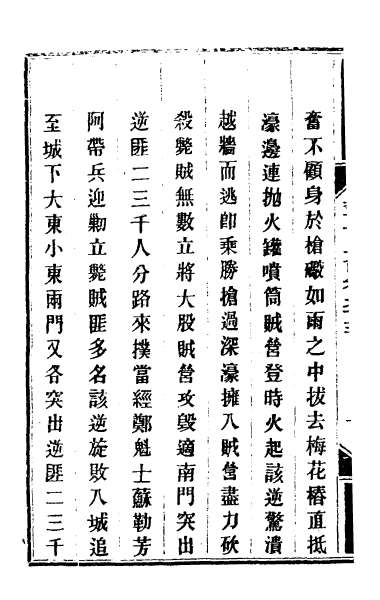 奮不顧身於槍礮如雨之中拔去梅花樁直抵
濠邊連拋火鑵噴筒賊營登時火起該逆驚潰
越牆而逃卽乘勝槍過深濠擁入賊營盡力砍
殺斃賊無數立將大股賊營攻毀適南門突出
逆匪二三千人分路來撲當經鄭魁士蘇勒芳
阿帶兵迎勦立斃賊匪多名該逆旋敗入城追
至城下大東小東兩門又各突出逆匪二三千